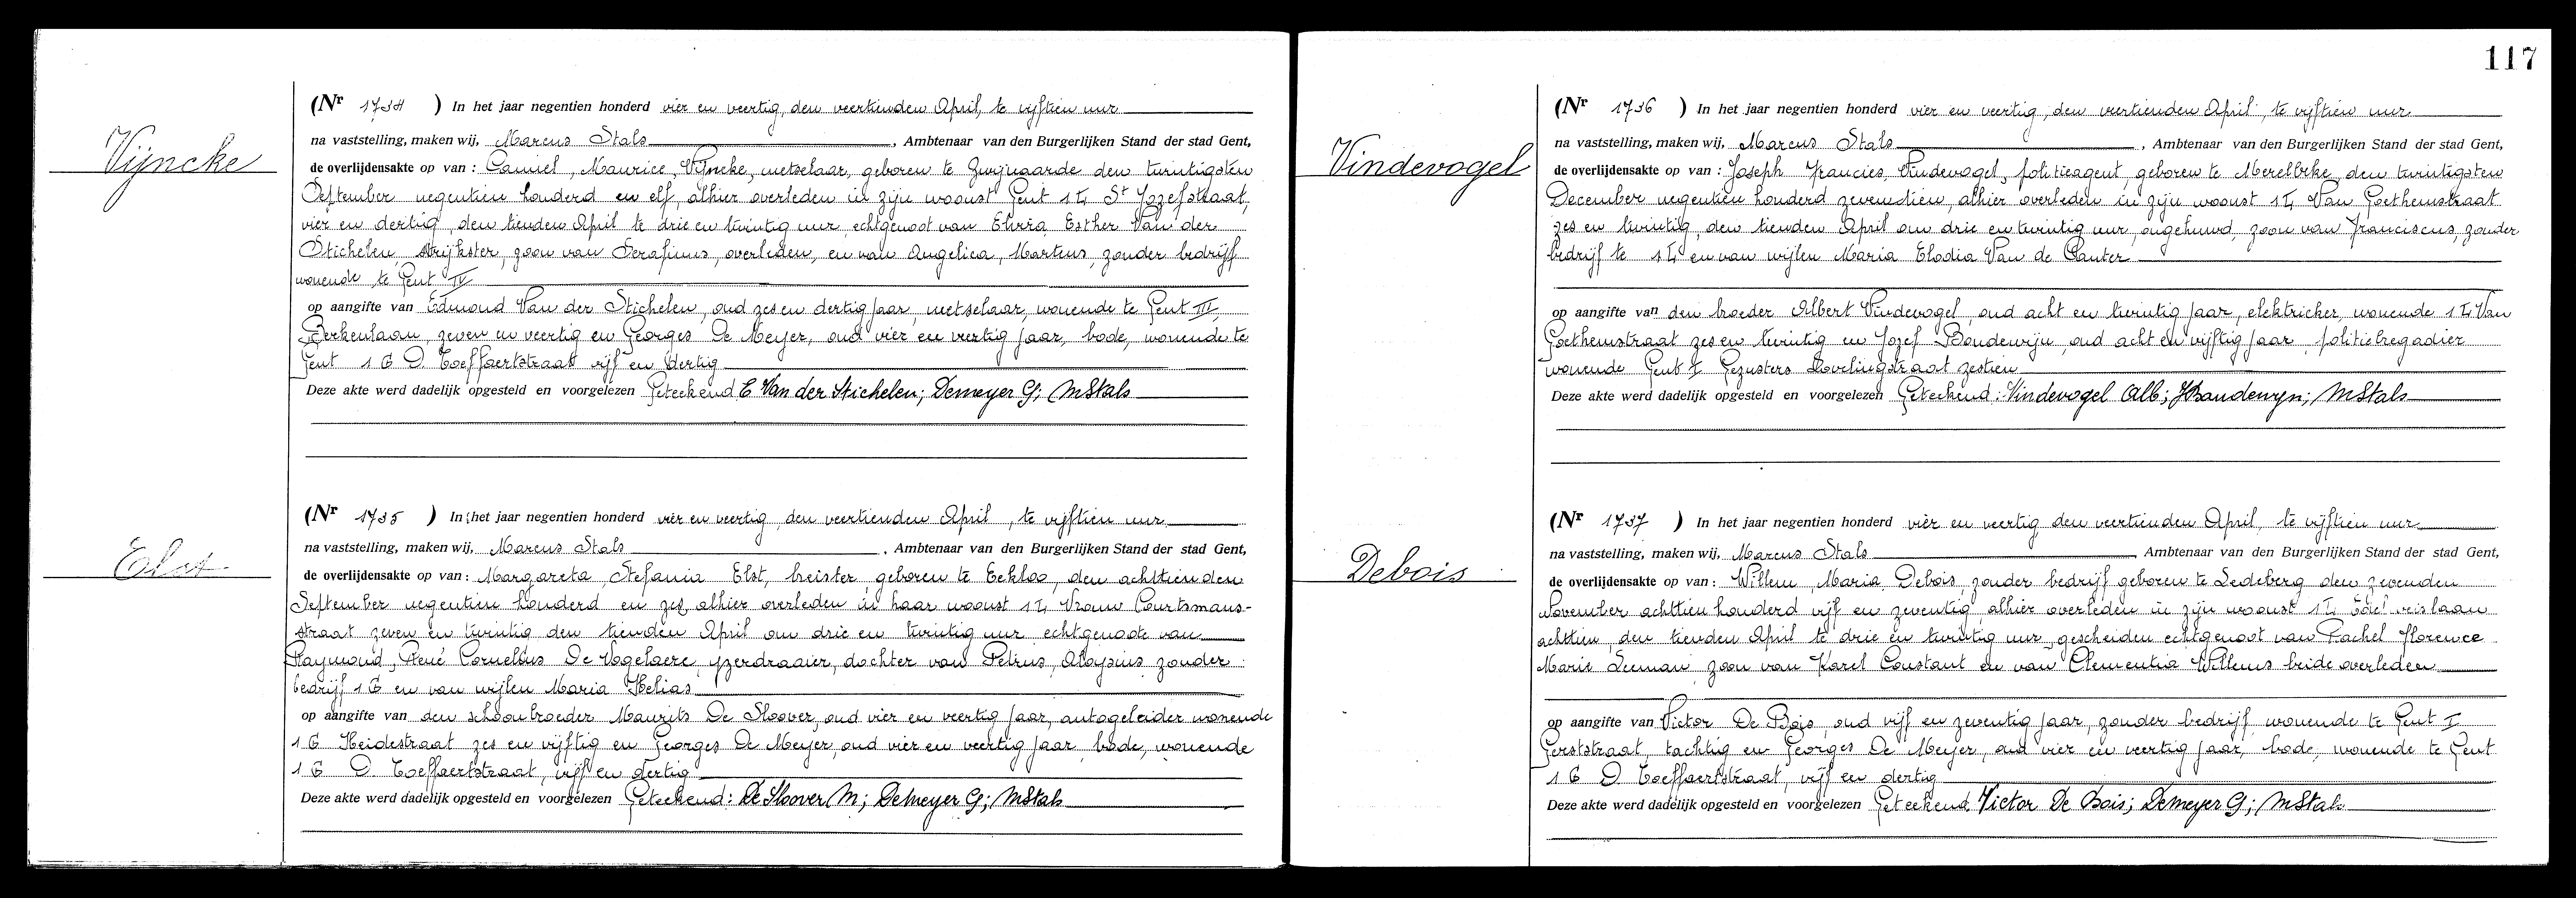 117
Vijncke
(Nr 1734 ) In het jaar negentien honderd vier en veertig, den veertienden April, te vijftien uur
na vaststelling, maken wij, Marcus Stals , Ambtenaar van den Burgerlijken Stand der stad Gent,
de overlijdensakte op van : Camiel, Maurice, Vijncke, metselaar, geboren te Zwijnaarde den twintigsten
September negentien honderd en elf, alhier overleden in zijn woonst Gent 14 St Jozefstraat,
vier en dertig, den tienden April te drie en twintig uur, echtgenoot van Elvira, Esther Van der
Stichelen, strijkster, zoon van Serafinus, overleden, en van Angelica, Martens, zonder bedrijf
wonende te Gent IV
op aangifte van Edmond Van der Stichelen, oud zes en dertig jaar, metselaar, wonende te Gent III,
Berkenlaan, zeven en veertig en Georges De Meyer, oud vier en veertig jaar, bode, wonende te
Gent 16 D. Toeffaertstraat vijf en dertig
Deze akte werd dadelijk opgesteld en voorgelezen Geteekend E Van der Stichelen; Demeyer G; MStals
Elst
(Nr 1735 ) In het jaar negentien honderd vier en veertig, den veertienden April, te vijftien uur
na vaststelling, maken wij, Marcus Stals , Ambtenaar van den Burgerlijken Stand der stad Gent,
de overlijdensakte op van : Margareta, Stefania Elst, breister, geboren te Eekloo, den achttienden
September negentien honderd en zes, alhier overleden in haar woonst 14 Vrouw Courtmans-
straat zeven en twintig den tienden April om drie en twintig uur echtgenoote van
Raymond, René Cornelius De Vogelaere, yzerdraaier, dochter van Petrus, Aloysius zonder
bedrijf 16 en van wijlen Maria Helias
op aangifte van den schoonbroeder Maurits De Sloover, oud vier en veertig jaar, autogeleider wonende
16 Heidestraat zes en vijftig en Georges De Meyer, oud vier en veertig jaar bode, wonende
16 D. Toeffaertstraat, vijf en dertig
Deze akte werd dadelijk opgesteld en voorgelezen Geteekend: De Sloover M; Demeyer G; MStals
Vindevogel
(Nr 1736 ) In het jaar negentien honderd vier en veertig, den veertienden April, te vijftien uur
na vaststelling, maken wij, Marcus Stals , Ambtenaar van den Burgerlijken Stand der stad Gent,
de overlijdensakte op van : Joseph Francies, Vindevogel, politieagent, geboren te Merelbeke, den twintigsten
December negentien honderd zeventien, alhier overleden in zijn woonst 14 Van Goethemstraat
zes en twintig, den tienden April om drie en twintig uur, ongehuwd, zoon van Franciscus, zonder
bedrijf te 14 en van wijlen Maria Elodia Van de Canter
op aangifte van den broeder Albert Vindevogel, oud acht en twintig jaar, elektrieker, wonende 14 Van
Goethemstraat zes en twintig en Jozef Boudewijn, oud acht en vijftig jaar, politiebregadier
wonende Gent I Gezusters Lovelingstraat zestien
Deze akte werd dadelijk opgesteld en voorgelezen Geteekend: Vindevogel Alb; JBaudewyn; MStals
Debois
(Nr 1737 ) In het jaar negentien honderd vier en veertig den veertienden April, te vijftien uur
na vaststelling, maken wij, Marcus Stals , Ambtenaar van den Burgerlijken Stand der stad Gent,
de overlijdensakte op van : Willem, Maria Debois, zonder bedrijf geboren te Ledeberg den zevenden
November achttien honderd vijf en zeventig alhier overleden in zijn woonst 14
achttien, den tienden April te drie en twintig uur, gescheiden echtgenoot van Rachel Florence
Marie Leeman zoon van Karel Constant en van Clementia Willems beide overleden
op aangifte van Victor De Bois, oud vijf en zeventig jaar, zonder bedrijf wonende te Gent I
Gerststraat, tachtig en Georges De Meyer, oud vier en veertig jaar, bode, wonende te Gent
16 D. Toeffaertstraat, vijf en dertig
Deze akte werd dadelijk opgesteld en voorgelezen Geteekend Victor De Bois; Demeyer G; MStals